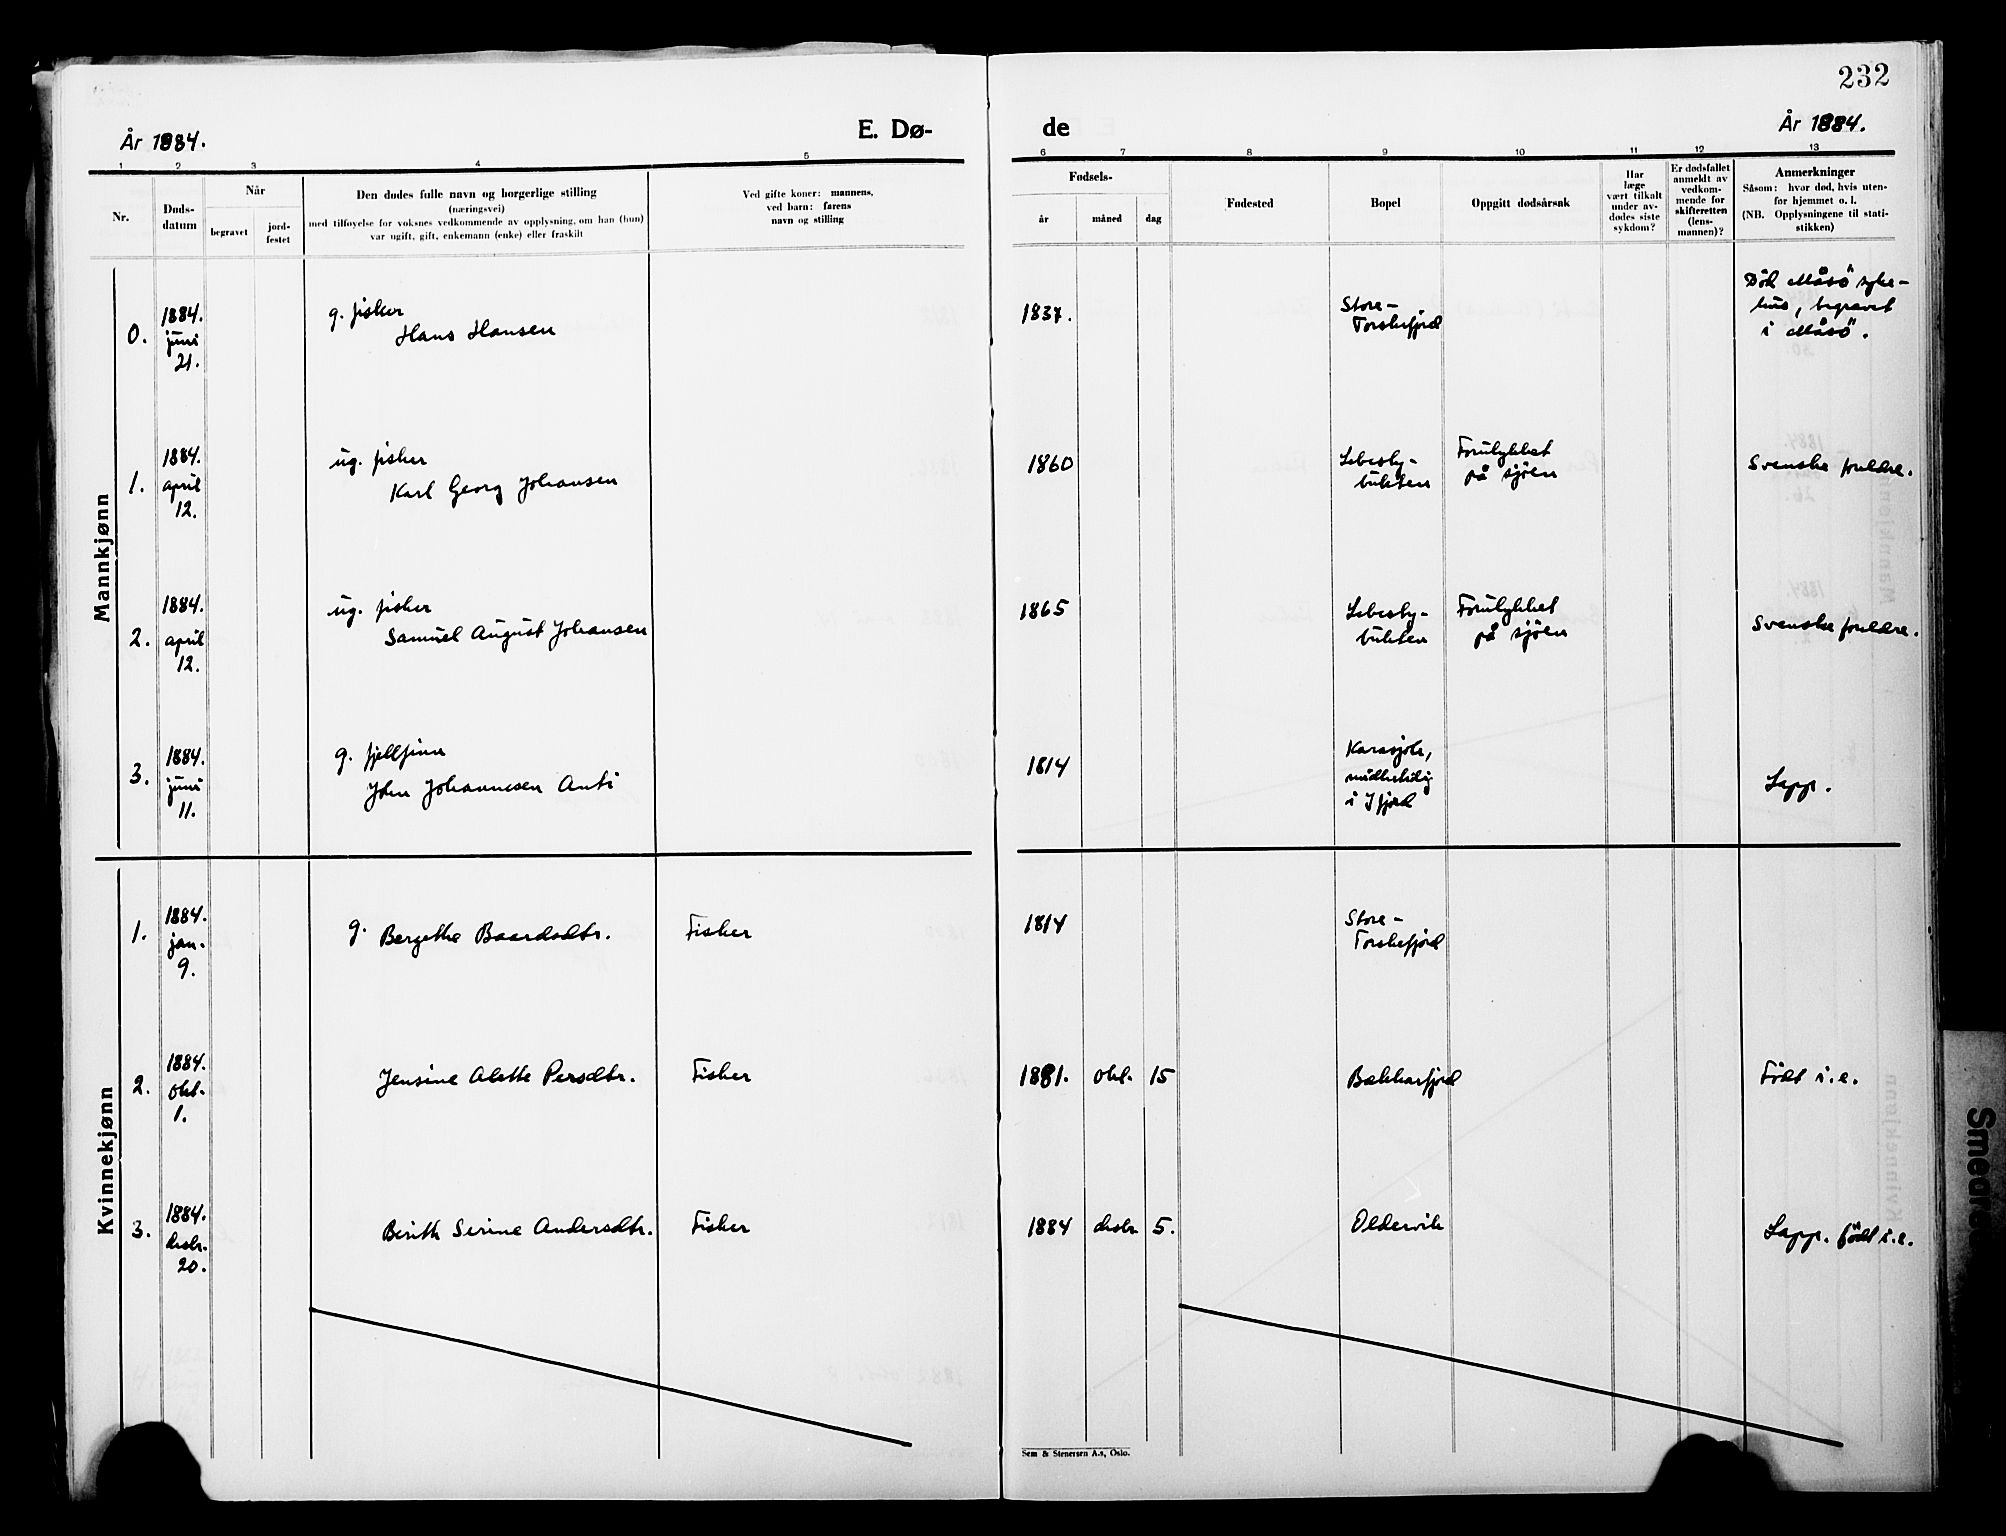 232
År 1884.
E. Dø-
de
År 1884.
1 2 3 4 5
6 7 8 9 10 11 12 13
Nr.
Døds-
datum
Når
begravet
jord-
festet
Den dødes fulle navn og borgerlige stilling
(næringsvei)
med tilføyelse for voksnes vedkommende av opplysning, om han (hun)
var ugift, gift, enkemann (enke) eller fraskilt
Ved gifte koner: mannens,
ved barn: farens
navn og stilling
Fødsels-
år
måned
dag
Fødested
Bopel
Oppgitt dødsårsak
Har
læge
vært tilkalt
under av-
dødes siste
sykdom?
Er dødsfallet
anmeldt av
vedkom-
mende for
skifteretten
(lens-
mannen)?
Anmerkninger
Såsom: hvor død, hvis uten-
for hjemmet o. l.
(NB. Opplysningene til stati-
stikken)
Mannkjønn
0.
1884.
juni
21.
g. fisker
Hans Hansen
1837.
Store-
Torskefjord
Död Måsö syke-
hus, begravet
i Måsö.
1.
1884.
april
12.
ug. fisker
Karl Georg Johansen
1860
Lebesby-
bukten
Forulykket
på sjöen
Svenske foreldre.
2.
1884.
april
12.
ug. fisker
Samuel August Johansen
1865
Lebesby-
bukten
Forulykket
på sjöen
Svenske foreldre.
3.
1884.
juni
11.
g. fjellfinn
John Johannesen Anti
1814
Karasjok,
midlertidig
i Ifjord
Lapp.
Kvinnekjønn
1.
1884.
jan.
9.
g. Bergethe Baardsdtr.
Fisker
1814
Store-
Torskefjord
2.
1884.
okt.
1.
Jensine Alette Persdtr.
Fisker
1881. okt. 15
Bekkarfjord
Födt i.e.
3.
1884.
desbr.
20.
Berith Serine Andersdtr.
Fisker
1884 desbr 5.
Oldervik
Lapp. födt i.e.
Sem & Stenersen A.s, Oslo.